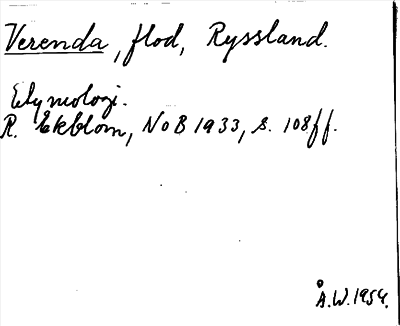 Verenda, flod, Ryssland.
Etymologi.
R. Ekblom, NoB 1933, s. 108ff.
Å.W. 1954.